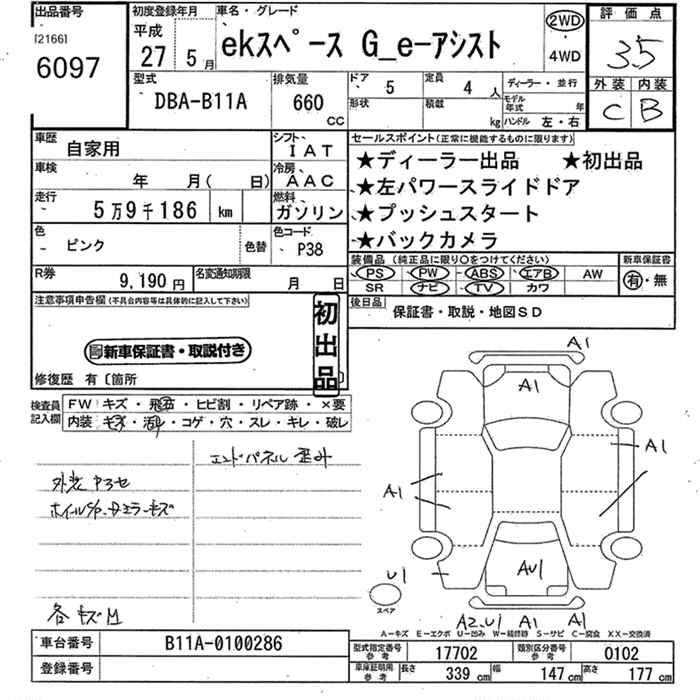 出品番号
[2166]
6097
初度登録年月
平成
27 5月
車名・グレード
ekスペース G_e-アシスト
2WD
4WD
評価点
3.5
外装 内装
C B
型式
DBA-B11A
排気量
660 CC
ドア 5
形状
定員 4 人
積載 kg
ディーラー・並行
モデル年式 年
ハンドル 左・右
車歴
自家用
シフト
IAT
車検
年 月( 日)
冷房
AAC
走行
5万9千186 km
燃料
ガソリン
色
ピンク
色替
色コード
P38
R券
9,190円
名変通知期限
月 日
セールスポイント(正常に機能するものに限ります)
★ディーラー出品 ★初出品
★左パワースライドドア
★プッシュスタート
★バックカメラ
装備品(純正品に限り○をつけてください)
新車保証書
PS PW ABS エアB AW
SR ナビ TV カワ
有・無
後日品
保証書・取説・地図SD
注意事項申告欄(不具合内容等は具体的に記入して下さい)
初出品
新車保証書・取説付き
修復歴 有〔箇所
検査員記入欄
FW キズ・飛石・ヒビ割・リペア跡・×要
内装 キズ・汚れ・コゲ・穴・スレ・キレ・破レ
エンドパネル歪み
外装
ホイールS/P
各キズ
A1
A1
A1
A1
U1
AU1
スペア
A2.U1 A1 A1
A-キズ E-エクボ U-凹み W-補修跡 S-サビ C-腐食 XX-交換済
車台番号
B11A-0100286
登録番号
型式指定番号 参考
17702
類別区分番号 参考
0102
車庫証明用 参考
長さ 339 cm 幅 147 cm 高さ 177 cm